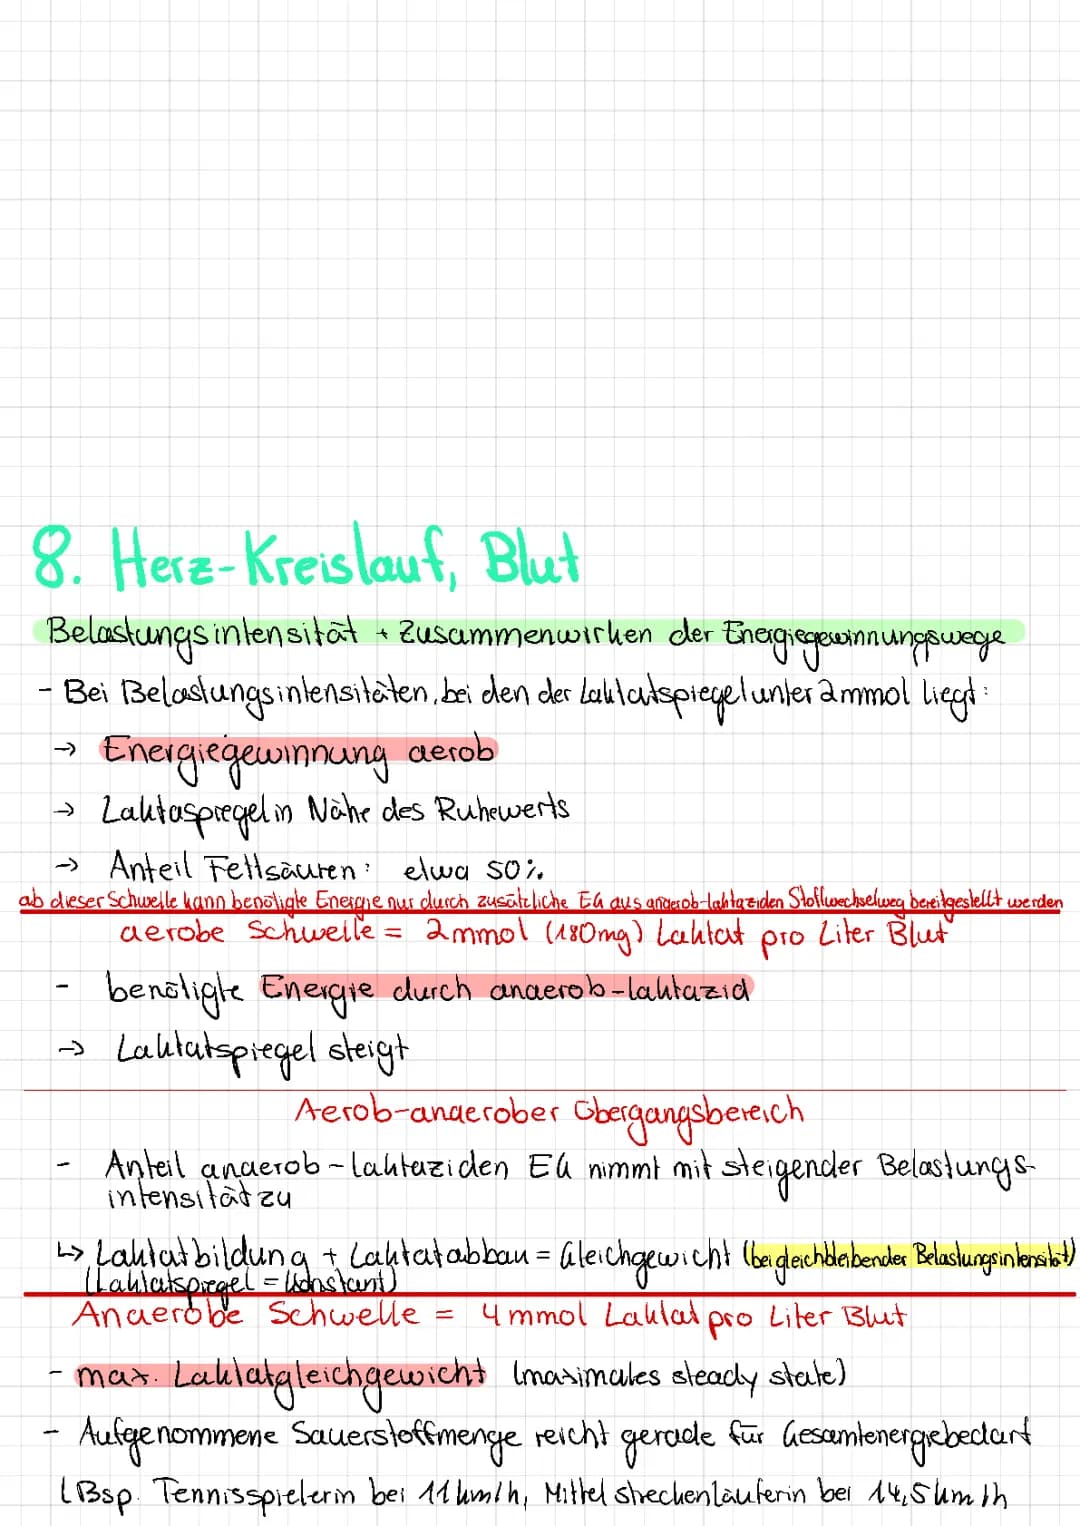 8. Herz-Kreislauf, Blut
Belastungsintensität + Zusammenwirken der Energiegewinnungswege
- Bei Belastungsintensitäten, bei den der Laktatspiegel unter 2mmol liegt:
→ Energiegewinnung aerob
→ Laktaspiegel in Nähe des Ruhewerts
→ Anteil Fettsäuren: etwa 50%
ab dieser Schwelle kann benötigte Energie nur durch zusätzliche EG aus anaerob-laktaziden Stoffwechselweg bereitgestellt werden
aerobe Schwelle = 2mmol (180mg) Laktat pro Liter Blut
- benötigte Energie durch anaerob-laktazid
→ Laktatspiegel steigt
Aerob-anaerober Übergangsbereich
- Anteil anaerob-laktaziden EG nimmt mit steigender Belastungs-
intensität zu
↳ Laktatbildung + Laktatabbau = Gleichgewicht (bei gleichbleibender Belastungsintensität)
(Laktatspiegel = konstant)
Anaerobe Schwelle = 4mmol Laktat pro Liter Blut
- max. Laktatgleichgewicht (maximales steady state)
- Aufgenommene Sauerstoffmenge reicht gerade für Gesamtenergiebedarf
(Bsp. Tennisspielerin bei 11km/h, Mittelstreckenläuferin bei 14,5km/h